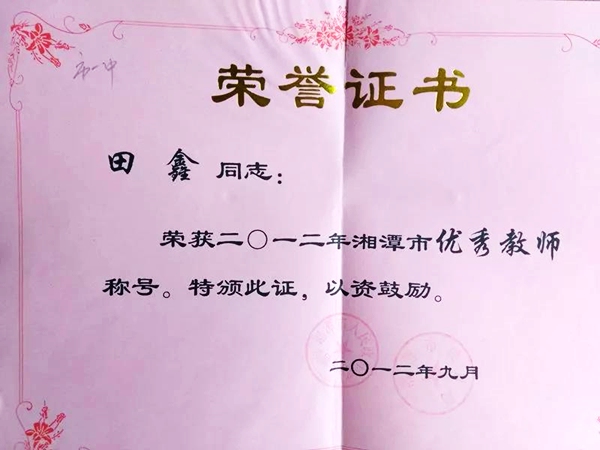 市一中
荣誉证书
田鑫同志：
荣获二〇一二年湘潭市优秀教师
称号。特颁此证，以资鼓励。
二〇一二年九月